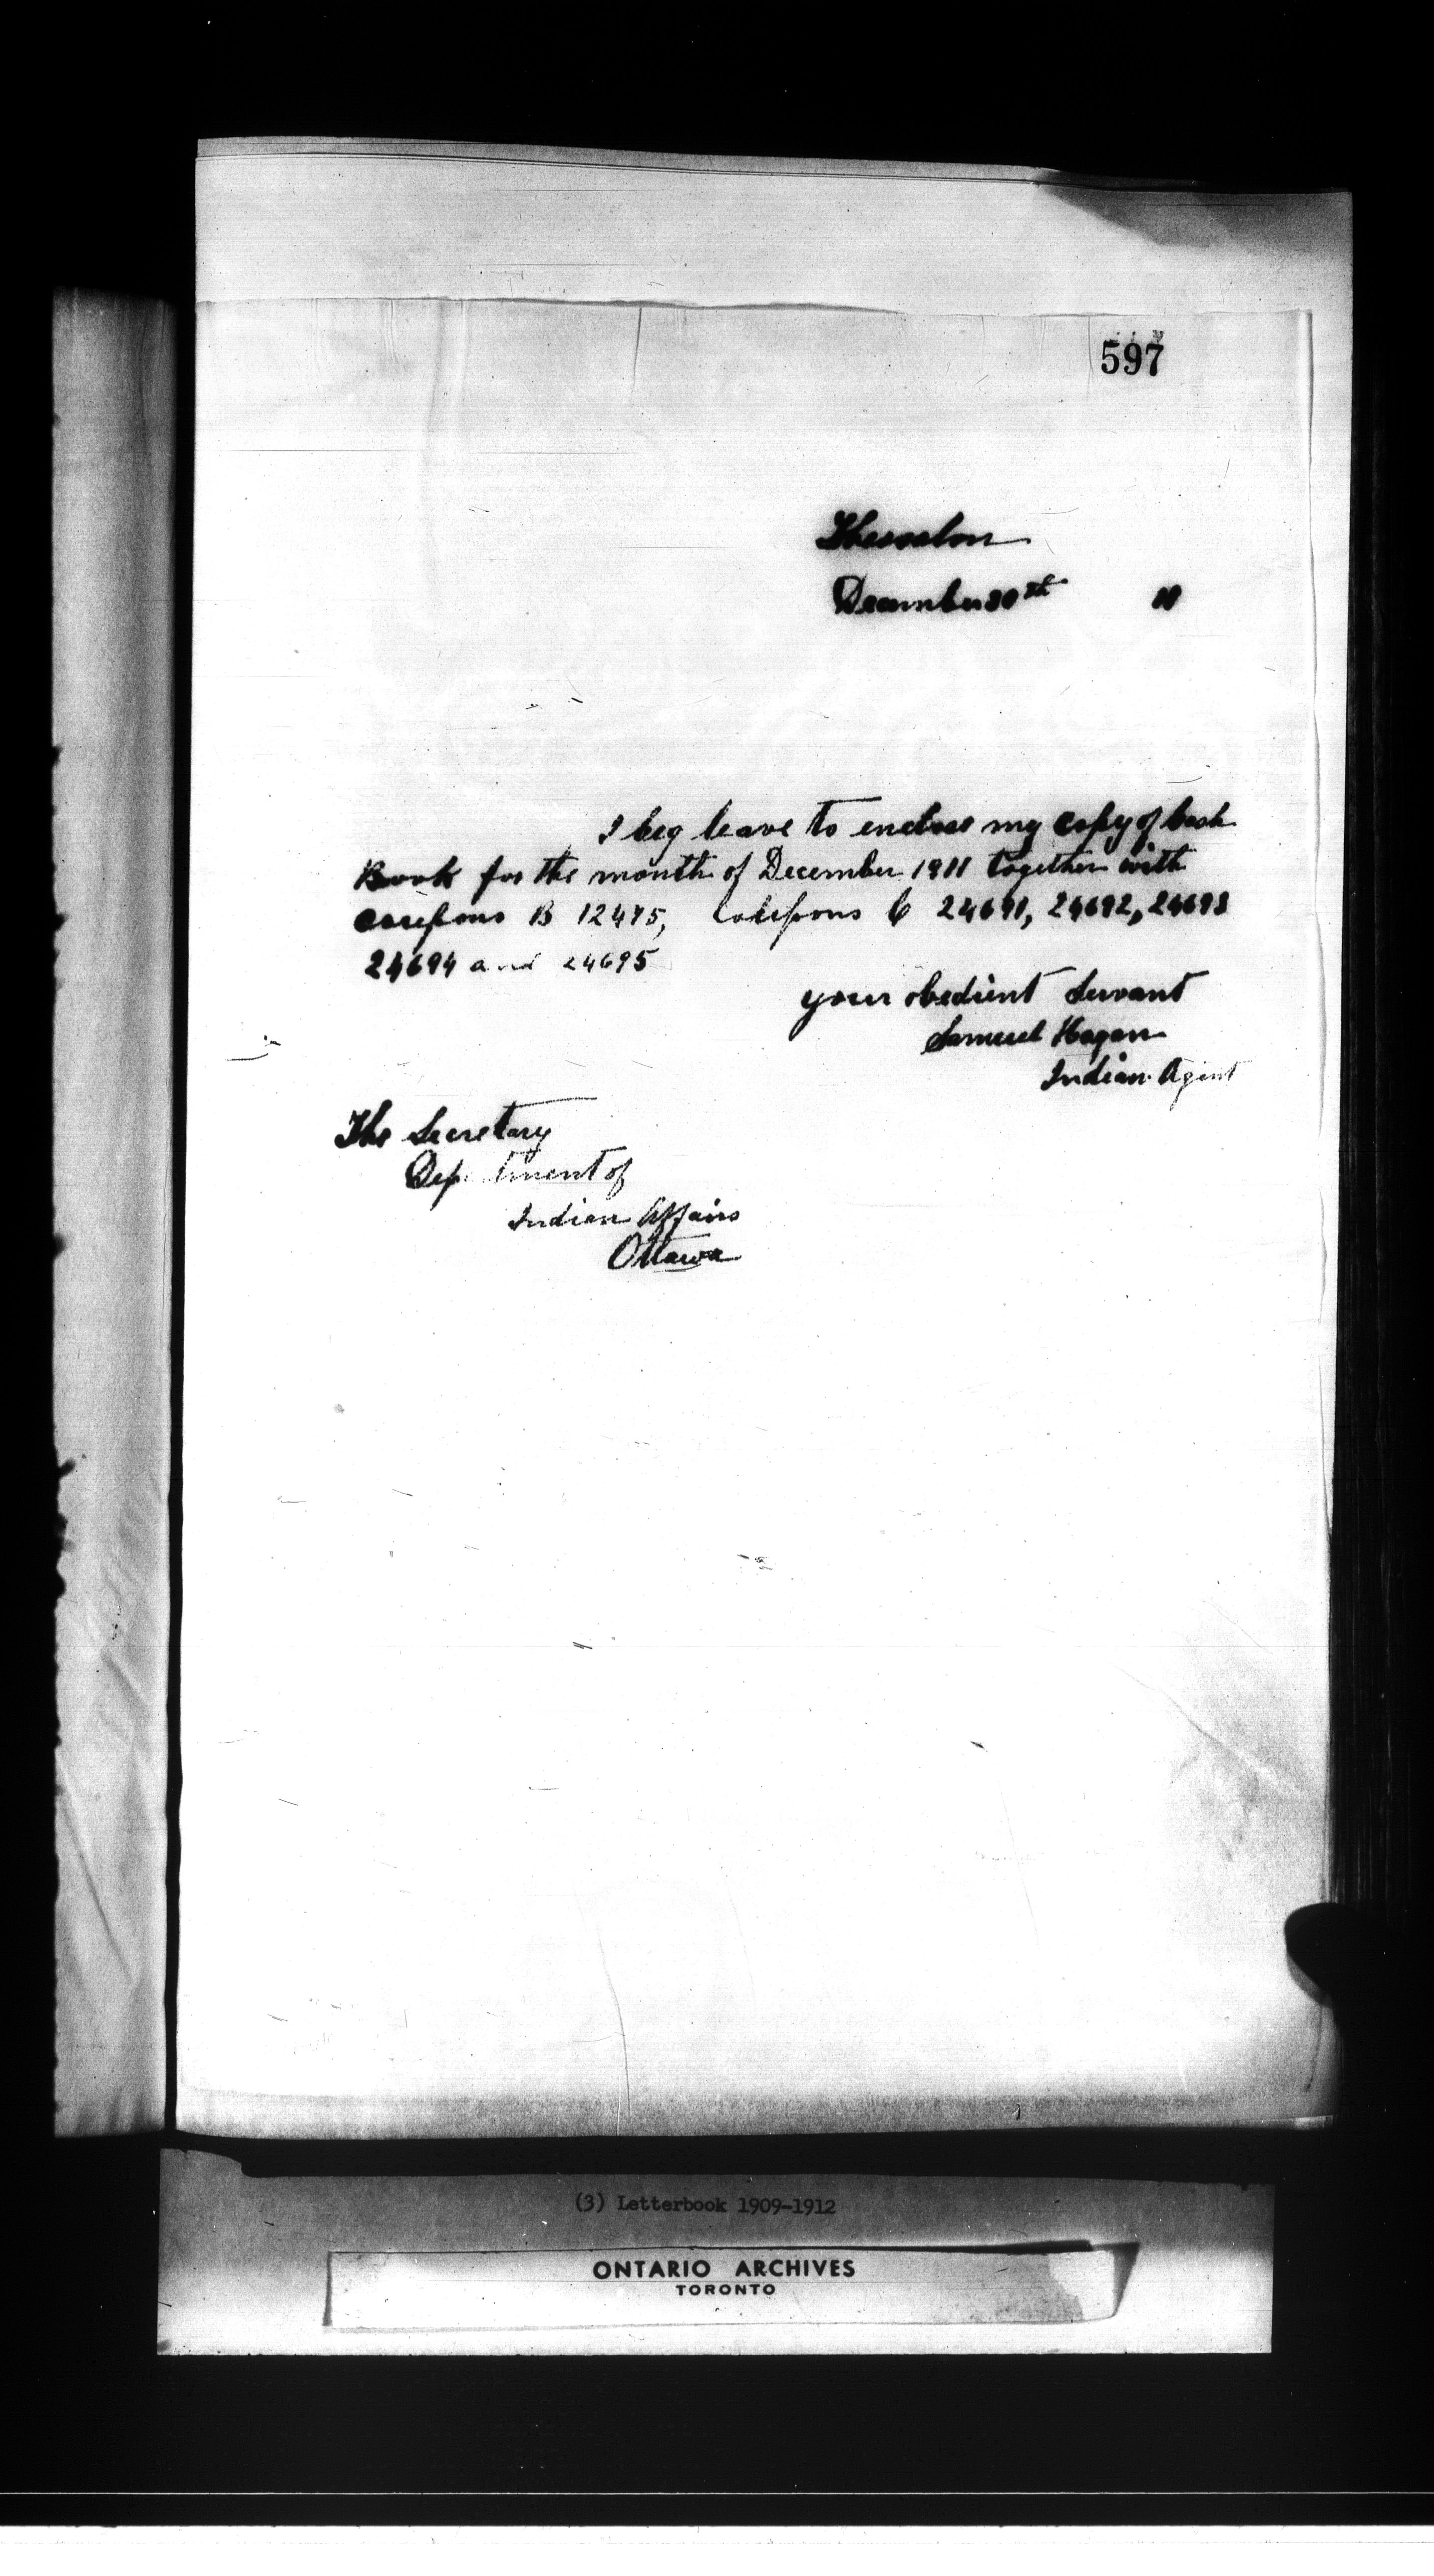 597
Thessalon
December 30th 11
I beg leave to enclose my copy of Cash
Book for the month of December 1911 together with
coupons B 12475, Coupons C 24691, 24692, 24693
24694 and 24695
your obedient Servant
Samuel Hagan
Indian Agent
The Secretary
Department of
Indian Affairs
Ottawa
(3) Letterbook 1909-1912
ONTARIO ARCHIVES
TORONTO